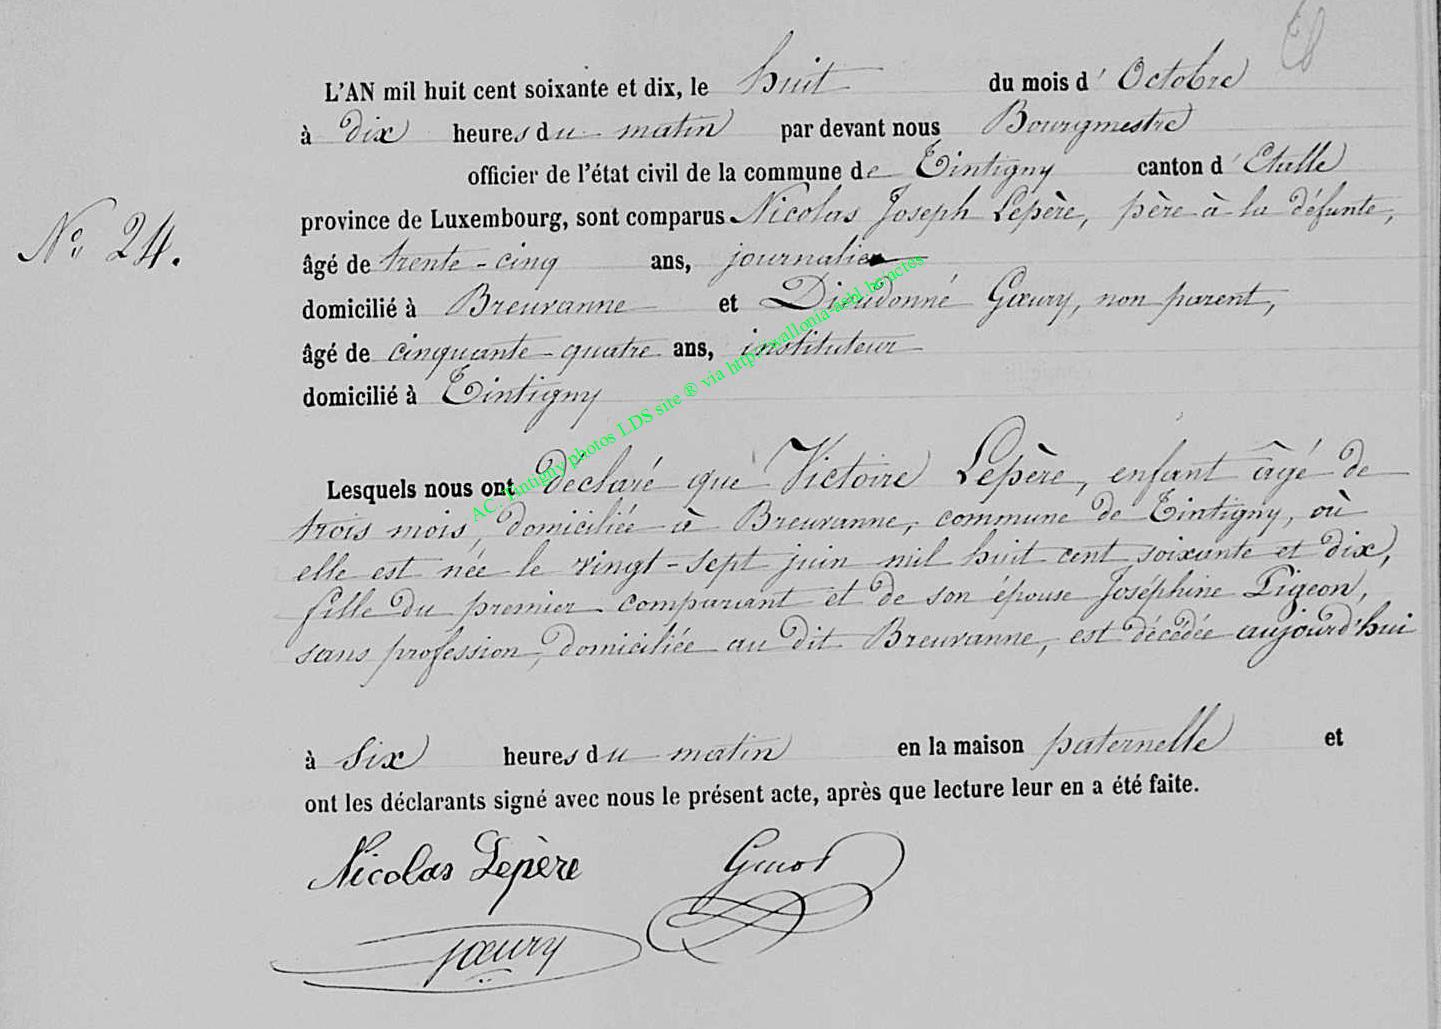 L'AN mil huit cent soixante et dix, le huit du mois d'Octobre
à dix heures du matin par devant nous Bourgmestre
officier de l'état civil de la commune de Tintigny canton d'Etalle
N° 24.
province de Luxembourg, sont comparus Nicolas Joseph Lepère, père à la défunte,
âgé de trente-cinq ans, journalier
domicilié à Breuvanne et Dieudonné Gœury, non parent,
âgé de cinquante-quatre ans, instituteur
domicilié à Tintigny
AC. Tintigny photos LDS site ® via http://wallonia-asbl.be/actes
Lesquels nous ont déclaré que Victoire Lepère, enfant âgé de
trois mois, domiciliée à Breuvanne, commune de Tintigny, où
elle est née le vingt-sept juin mil huit cent soixante et dix,
fille du premier comparant et de son épouse Joséphine Pigeon,
sans profession, domiciliée au dit Breuvanne, est décédée aujourd'hui
à six heures du matin en la maison paternelle et
ont les déclarants signé avec nous le présent acte, après que lecture leur en a été faite.
Nicolas Lepère
Gœury